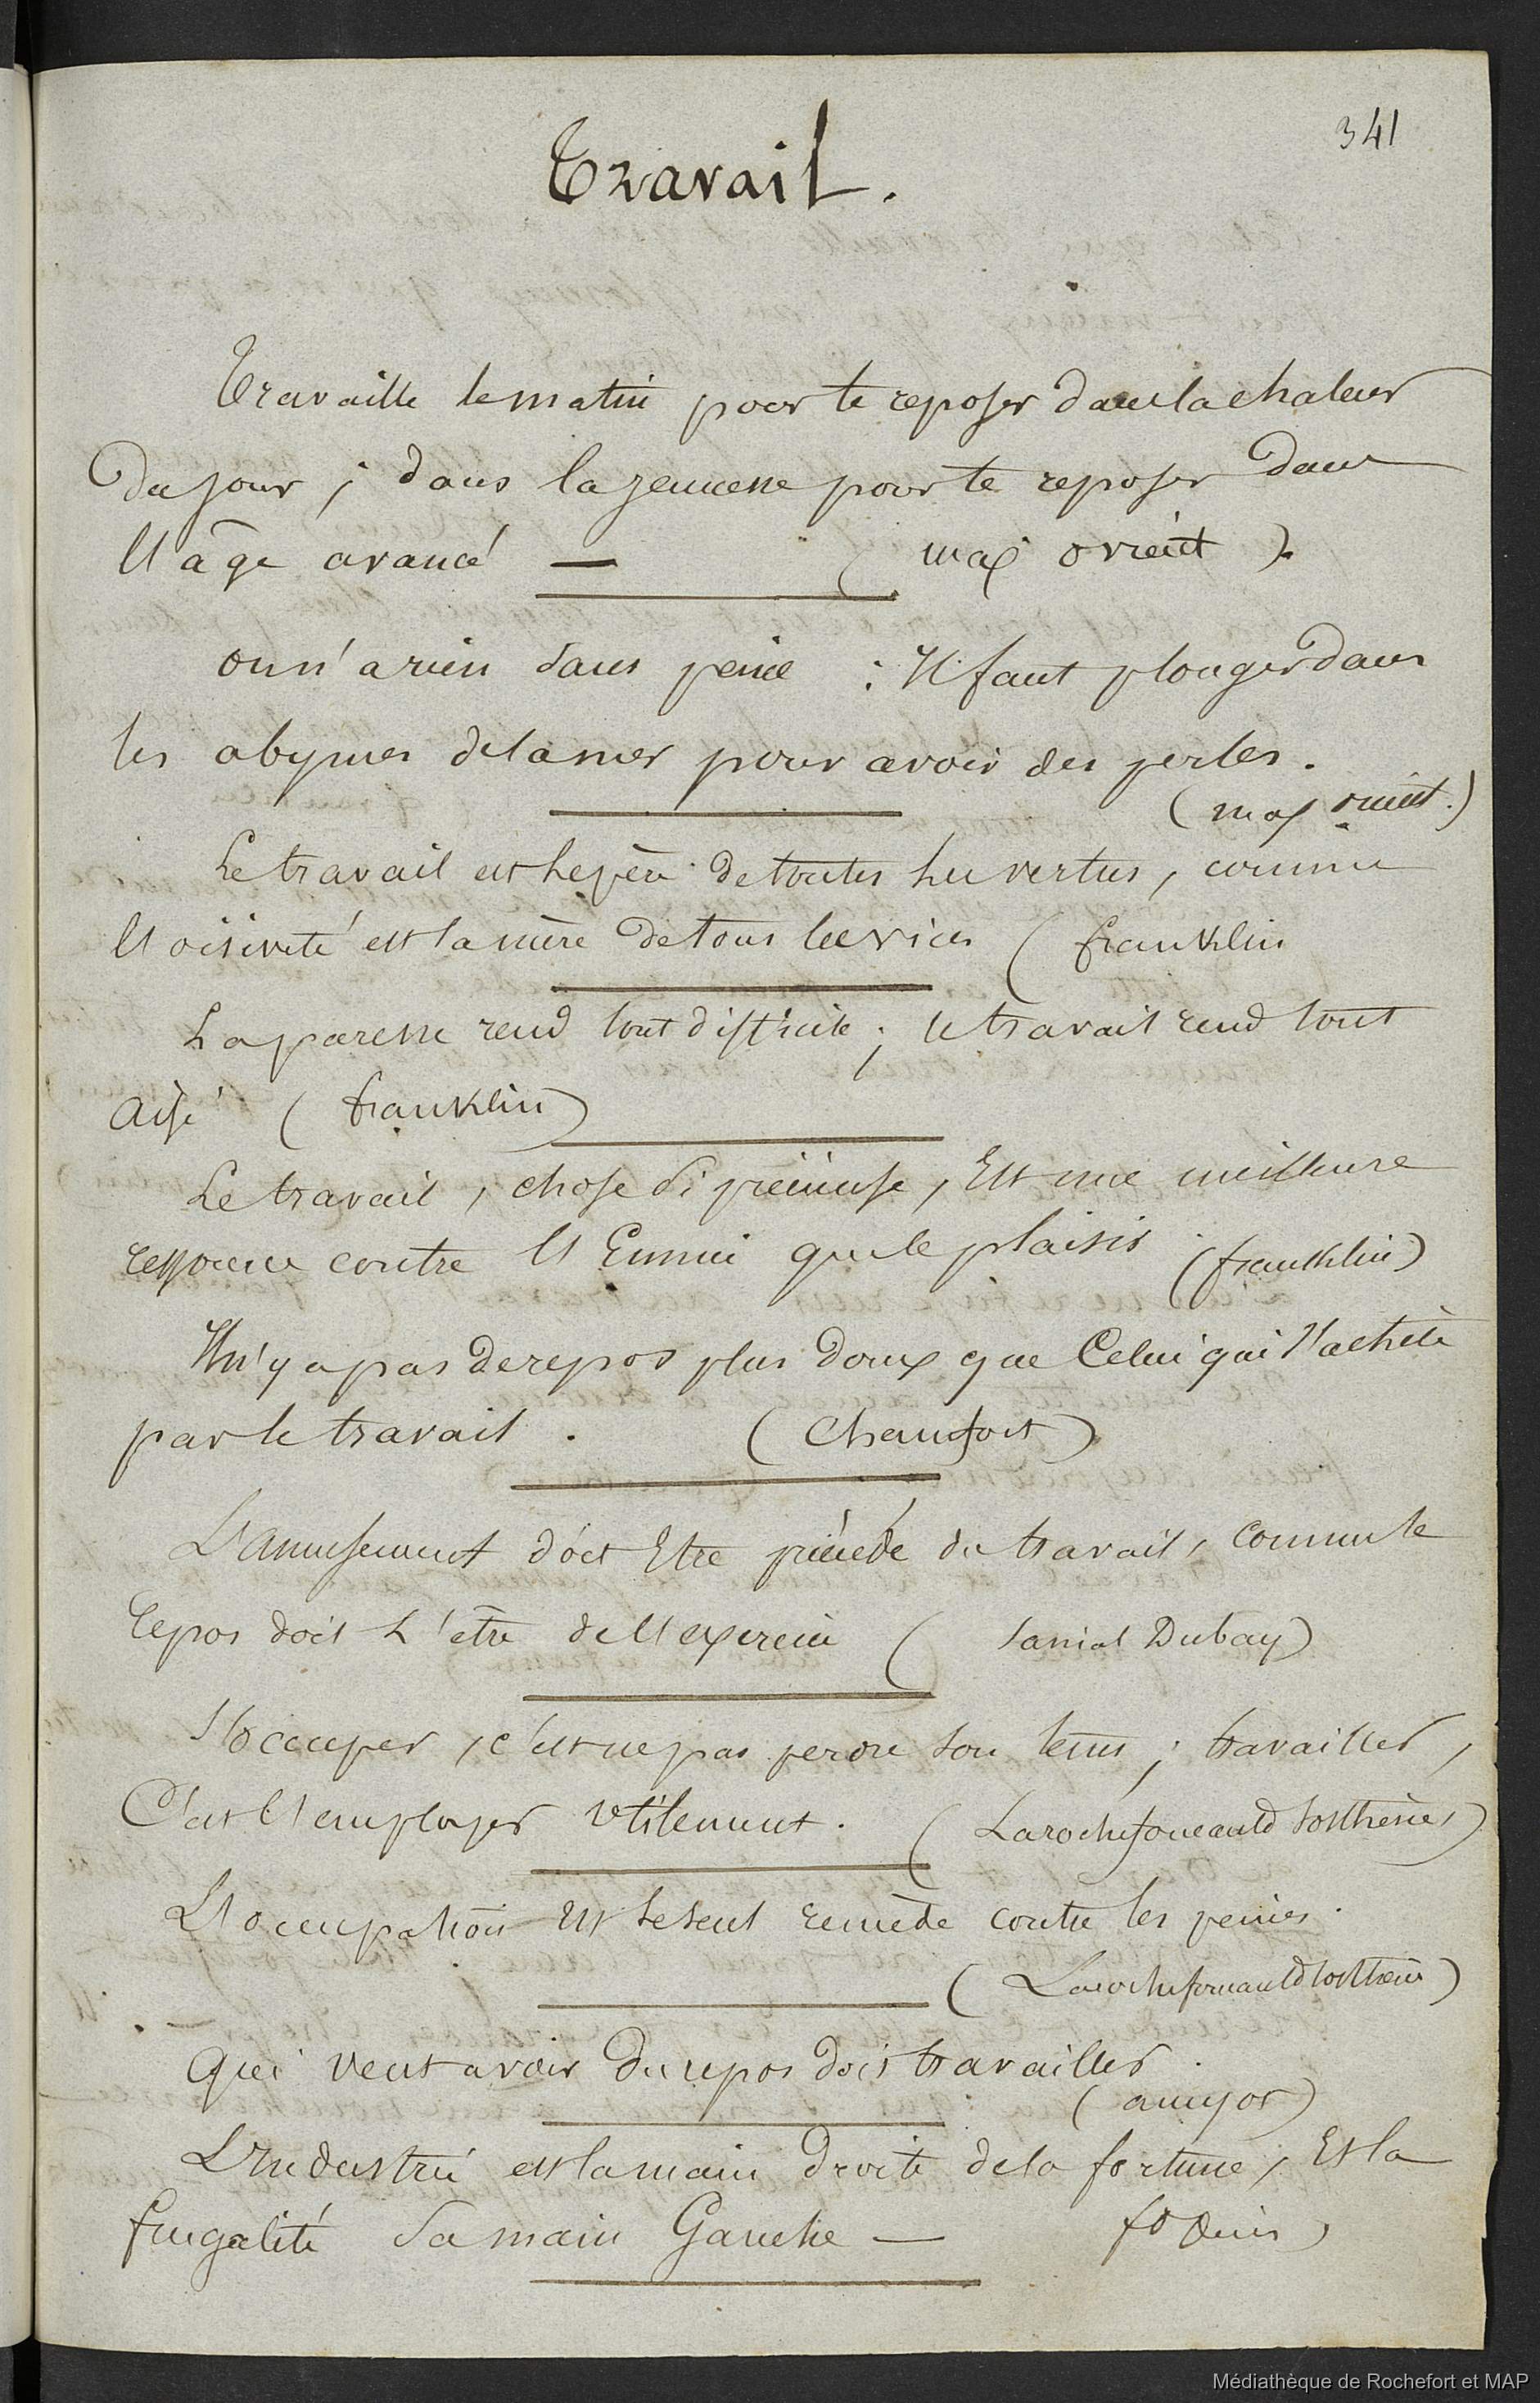 341
Travail.
Travaille le matin pour te reposer dans la chaleur
du jour ; dans la jeunesse pour te reposer dans
l'âge avancé — ( max orient ).
on n'a rien sans peine : Il faut plonger dans
les abymes de la mer pour avoir des perles.
( max orient.)
Le travail est le père de toutes les vertus, comme
l'oisiveté est la mère de tous les vices ( franklin
La paresse rend tout difficile ; le travail rend tout
aisé ( franklin )
Le travail, chose si précieuse, Est une meilleure
ressource contre l'Ennui que le plaisir. (franklin)
Il n'y a pas de repos plus doux que Celui qui s'achète
par le travail. ( Chamfort )
L'amusement doit Etre précédé du travail, comme le
repos doit L'être de l'exercice ( Sanial Dubay)
S'occuper, c'est ne pas perdre son tems ; travailler,
C'est l'employer utilement. ( Larochefoucauld Sosthènes)
L'occupation Est le seul remède contre les peines.
( Larochefoucauld Sosthènes )
Qui veut avoir du repos doit travailler.
( amyot )
L'Industrie est la main droite de la fortune, Et la
frugalité Sa main Gauche —
Médiathèque de Rochefort et MAP